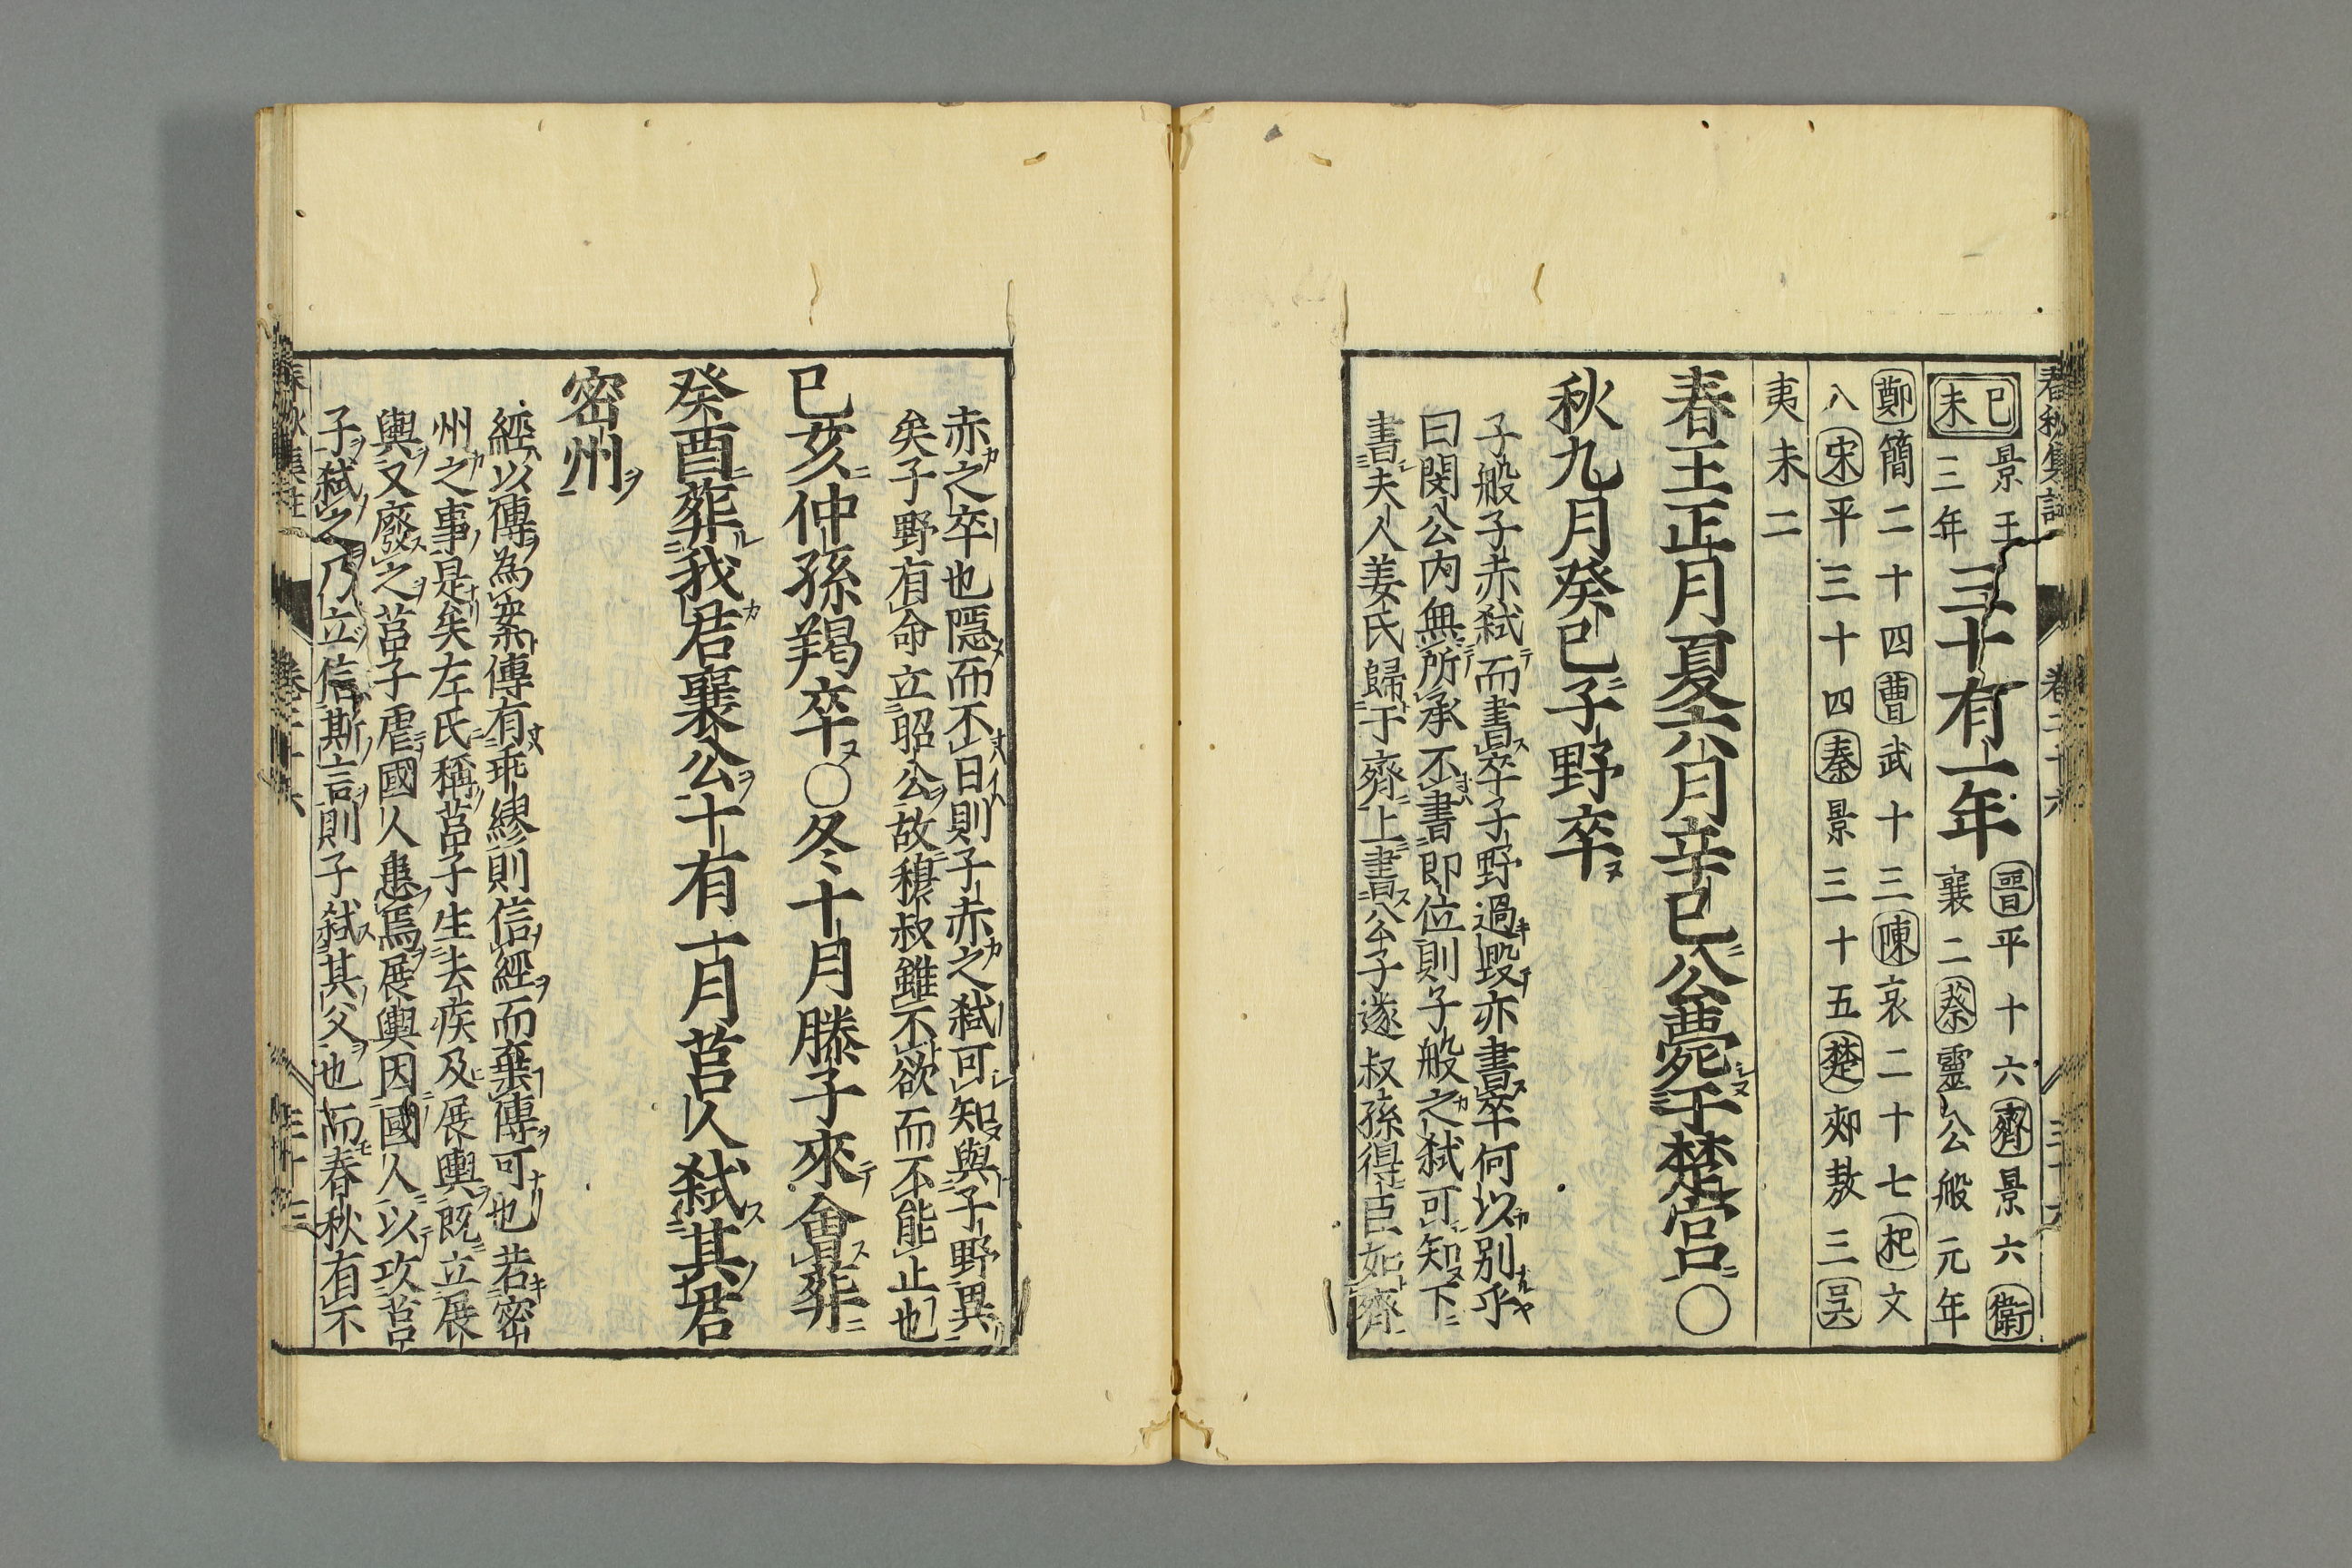 春秋集註
卷二十六
三十六
己未
景王三年
三十有一年
晉平十六齊景六衛
襄二蔡靈公般元年
鄭簡二十四曹武十三陳哀二十七杞文
八宋平三十四秦景三十五楚郟敖三吳
夷末二
春王正月夏六月辛巳公薨于楚宮○
秋九月癸巳子野卒
子般子赤弑而書卒子野過毀亦書卒何以別乎
曰閔公内無所承不書即位則子般之弑可知下
書夫人姜氏歸于齊上書公子遂叔孫得臣如齊
赤之卒也隱而不日則子赤之弑可知與子野異
矣子野有命立昭公故穆叔雖不欲而不能止也
己亥仲孫羯卒○冬十月滕子來會葬
癸酉葬我君襄公十有一月莒人弑其君
密州
經以傳為案傳有乖繆則信經而棄傳可也若密
州之事是矣左氏稱莒子生去疾及展輿既立展
輿又廢之莒子虐國人患焉展輿因國人以攻莒
子弑之乃立信斯言則子弑其父也而春秋有不
春秋集註
卷二十六